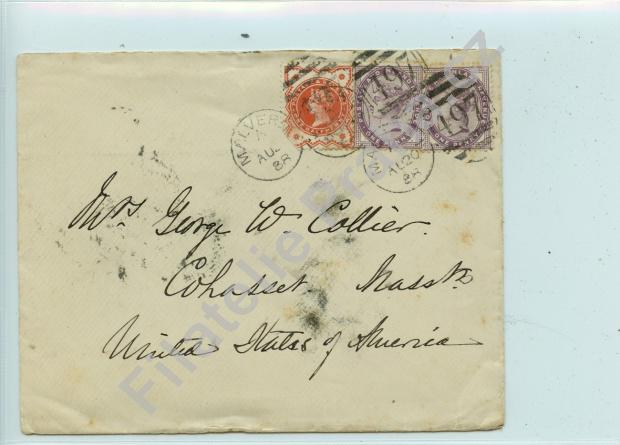 MALVERN
A
AU
88
497
497
MA
AU 20
88
Mrs George W. Collier.
Cohasset. Masstts
United States of America
Filatelie Praga.cz